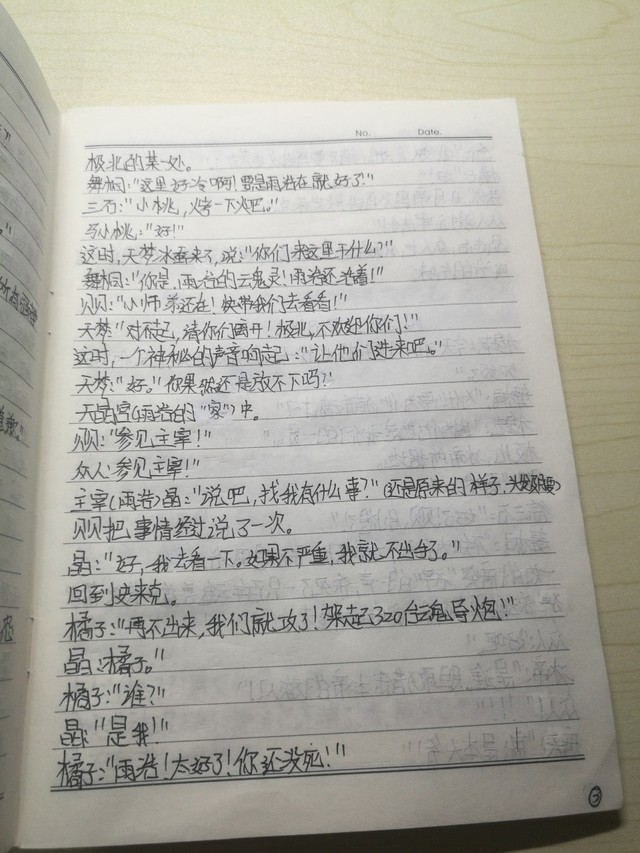 No.    Date.
极北的某一处。
舞桐:"这里好冷啊!要是雨浩在就好了!"
三石:"小桃,烤一下火吧。"
马小桃:"好!"
这时,天梦冰蚕来了,说:"你们来这里干什么?"
舞桐:"你是,雨浩的云魂灵!雨浩还活着!"
贝贝:"小师弟还在!快带我们去看看!"
天梦:"对不起,请你们离开!极北,不欢迎你们!"
这时,一个神秘的声音响起:"让他们进来吧。"
天梦:"好。"你果然还是放不下吗?
天晶宫(雨浩的"家")中。
贝贝:"参见主宰!"
众人:参见主宰!"
主宰(雨浩)晶:"说吧,找我有什么事?"(还是原来的样子,头发
贝贝把事情经过说了一次。
晶:"好,我去看一下。如果不严重,我就不出台了。"
回到史来克。
橘子:"再不出来,我们就攻了!架起320台魂导炮!"
晶:橘子。"
橘子:"谁?"
晶:"是我!"
橘子:"雨浩!太好了!你还没死!"